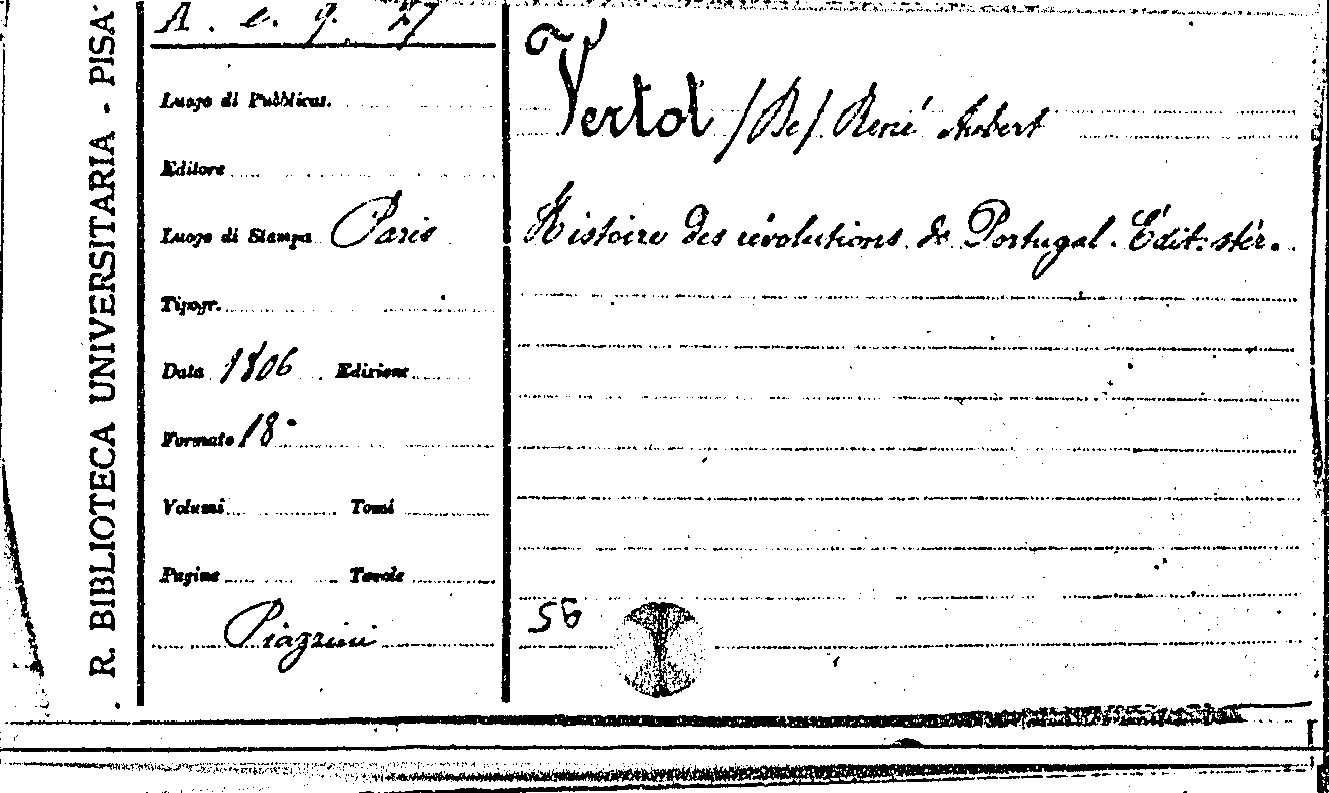 R. BIBLIOTECA UNIVERSITARIA - PISA
A. e. 9. 27
Luogo di Pubblicaz.
Editore
Luogo di Stampa Paris
Tipogr.
Data 1806 Edizione
Formato 18°
Volumi Tomi
Pagine Tavole
Piazzini
Vertot /De/ René Aubert
Histoire des révolutions de Portugal. Édit. stér.